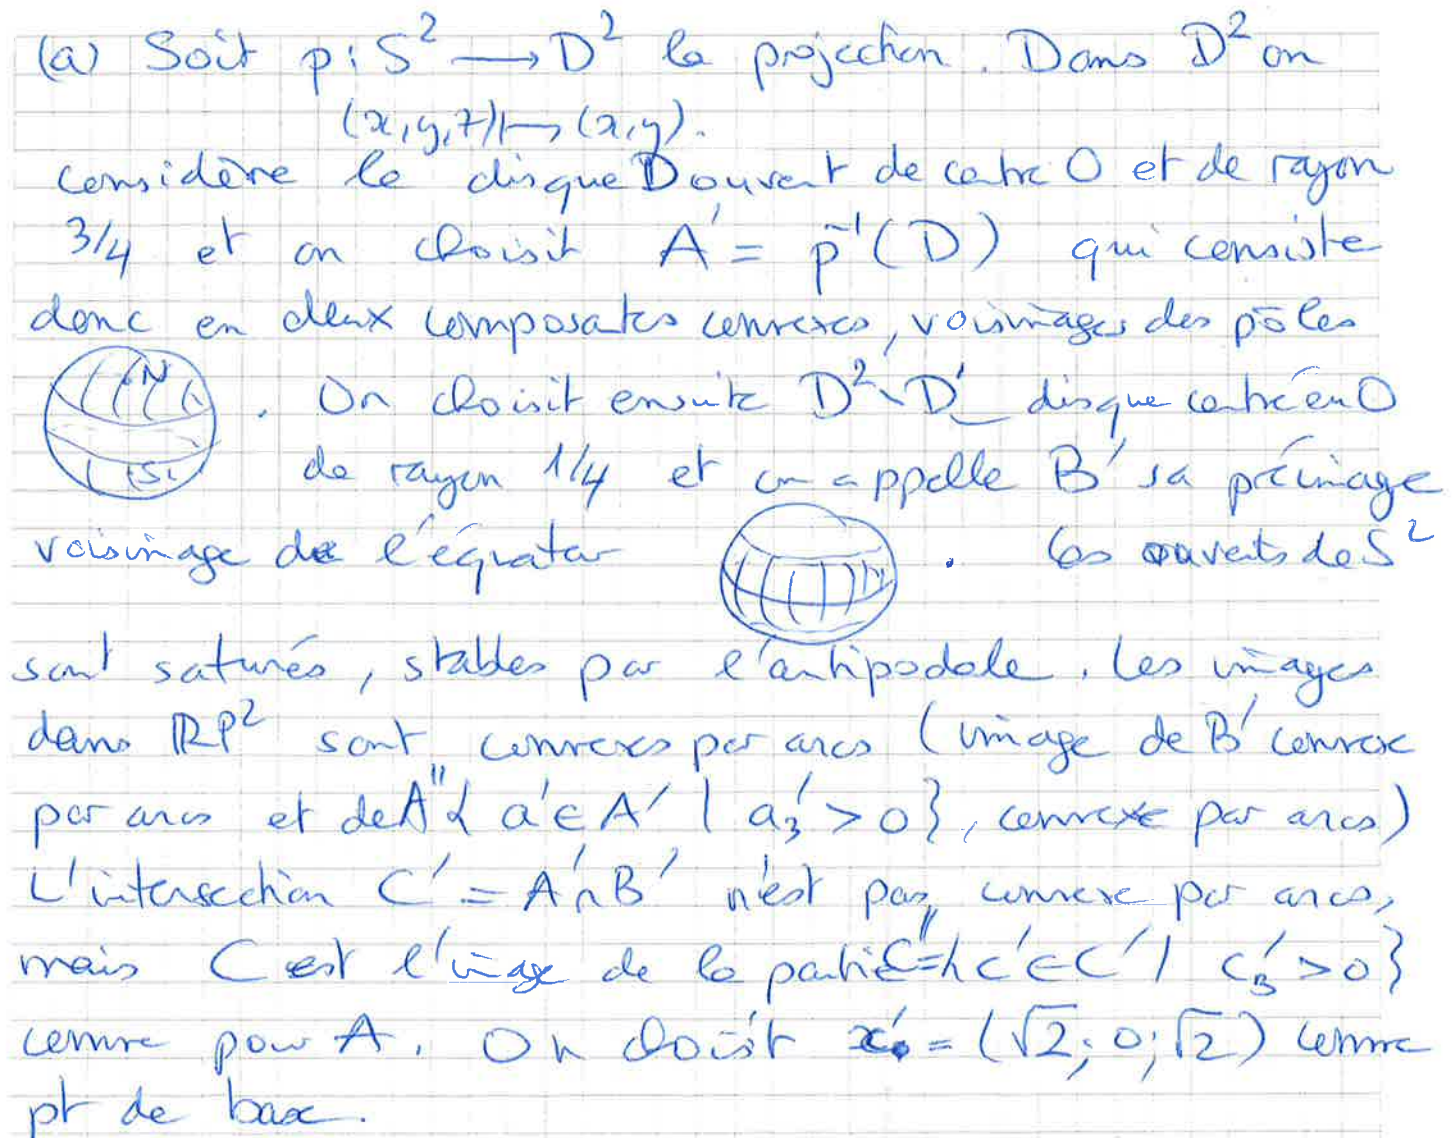 (a) Soit p : S² ⟶ D² la projection. Dans D² on
(x, y, z) ⟼ (x, y).
considère le disque D ouvert de centre O et de rayon
3/4 et on choisit A' = p⁻¹(D) qui consiste
donc en deux composantes connexes, voisinages des pôles
N . On choisit ensuite D² \ D' disque centré en O
S de rayon 1/4 et on appelle B' sa préimage
voisinage de l'équateur . Ces ouverts de S²
sont saturés, stables par l'antipodale. Les images
dans RP² sont connexes par arcs (image de B' connexe
par arcs et de A'' { a' ∈ A' | a'₃ > 0 }, connexe par arcs)
L'intersection C' = A' ∩ B' n'est pas connexe par arcs,
mais C est l'image de la partie C'' = { c' ∈ C' | c'₃ > 0 }
comme pour A. On choisit x'₀ = (√2; 0; √2) comme
pt de base.